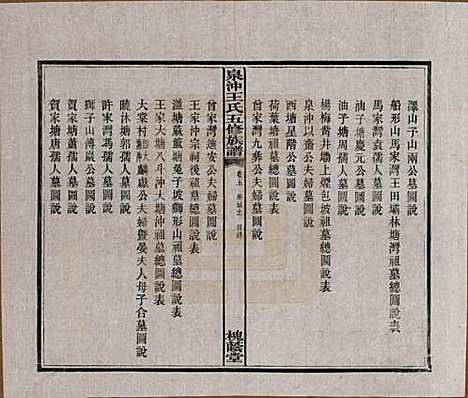 澤山子山兩公墓圖說
船形山馬家灣王田壩林塘灣祖墓總圖說表
馬家灣袁孺人墓圖說
油子塘慶元公墓圖說
油子塘周孺人墓圖說
楊梅嶅井塘上煙包坡祖墓總圖說表
泉沖以齋公夫婦墓圖說
西塘星階公墓圖說
荷葉塘祖墓總圖說表
曾家灣九彝公夫婦墓圖說
泉沖王氏五修族譜
卷五
目錄
槐蔭堂
曾家灣遠安公夫婦墓圖說
王家沖宗祠後祖墓總圖說表
滋塘蔴藍塘兔子坡獅形山祖墓總圖說表
王家大塘八斗沖大塘沖祖墓總圖說表
大棠村大麟獻公夫婦暨晏夫人母子合墓圖說
曉沐塘郭孺人墓圖說
許家灣馮孺人墓圖說
獅子山溥巖公墓圖說
賀家塘蕭孺人墓圖說
賀家塘唐孺人墓圖說